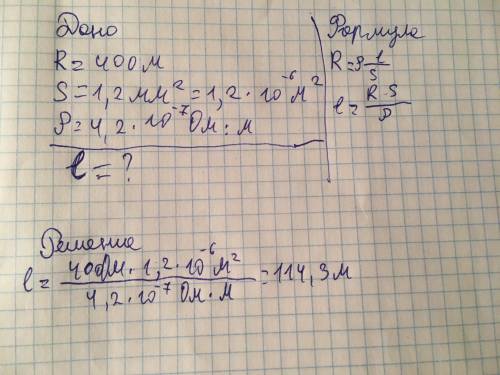 Дано
R = 400 м
S = 1,2 мм² = 1,2 · 10⁻⁶ м²
ρ = 4,2 · 10⁻⁷ Ом · м
l = ?
Формула
R = ρ l/S
l = R · S/ρ
Решение
l = 400м · 1,2 · 10⁻⁶ м² / 4,2 · 10⁻⁷ Ом · м = 114,3 м